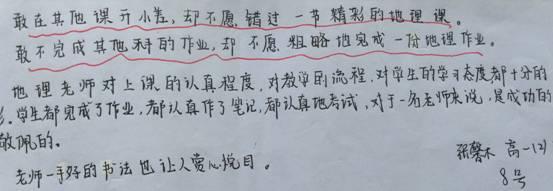 敢在其他课开小差,却不愿错过一节精彩的地理课。
敢不完成其他科的作业,却不愿粗略地完成一份地理作业。
地理老师对上课的认真程度,对教学的流程,对学生的学习态度都十分的
学生都完成了作业,都认真作了笔记,都认真地考试,对于一名老师来说,是成功的
敬佩的。
老师一手好的书法也让人赏心悦目。
张馨木 高一(2)
8号